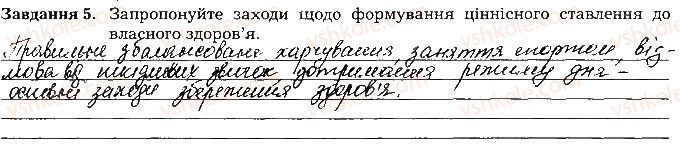 Завдання 5. Запропонуйте заходи щодо формування ціннісного ставлення до
власного здоров'я.
Правильне збалансоване харчування, заняття спортом, від-
мова від шкідливих звичок, дотримання режиму дня -
основні заходи збереження здоров'я.